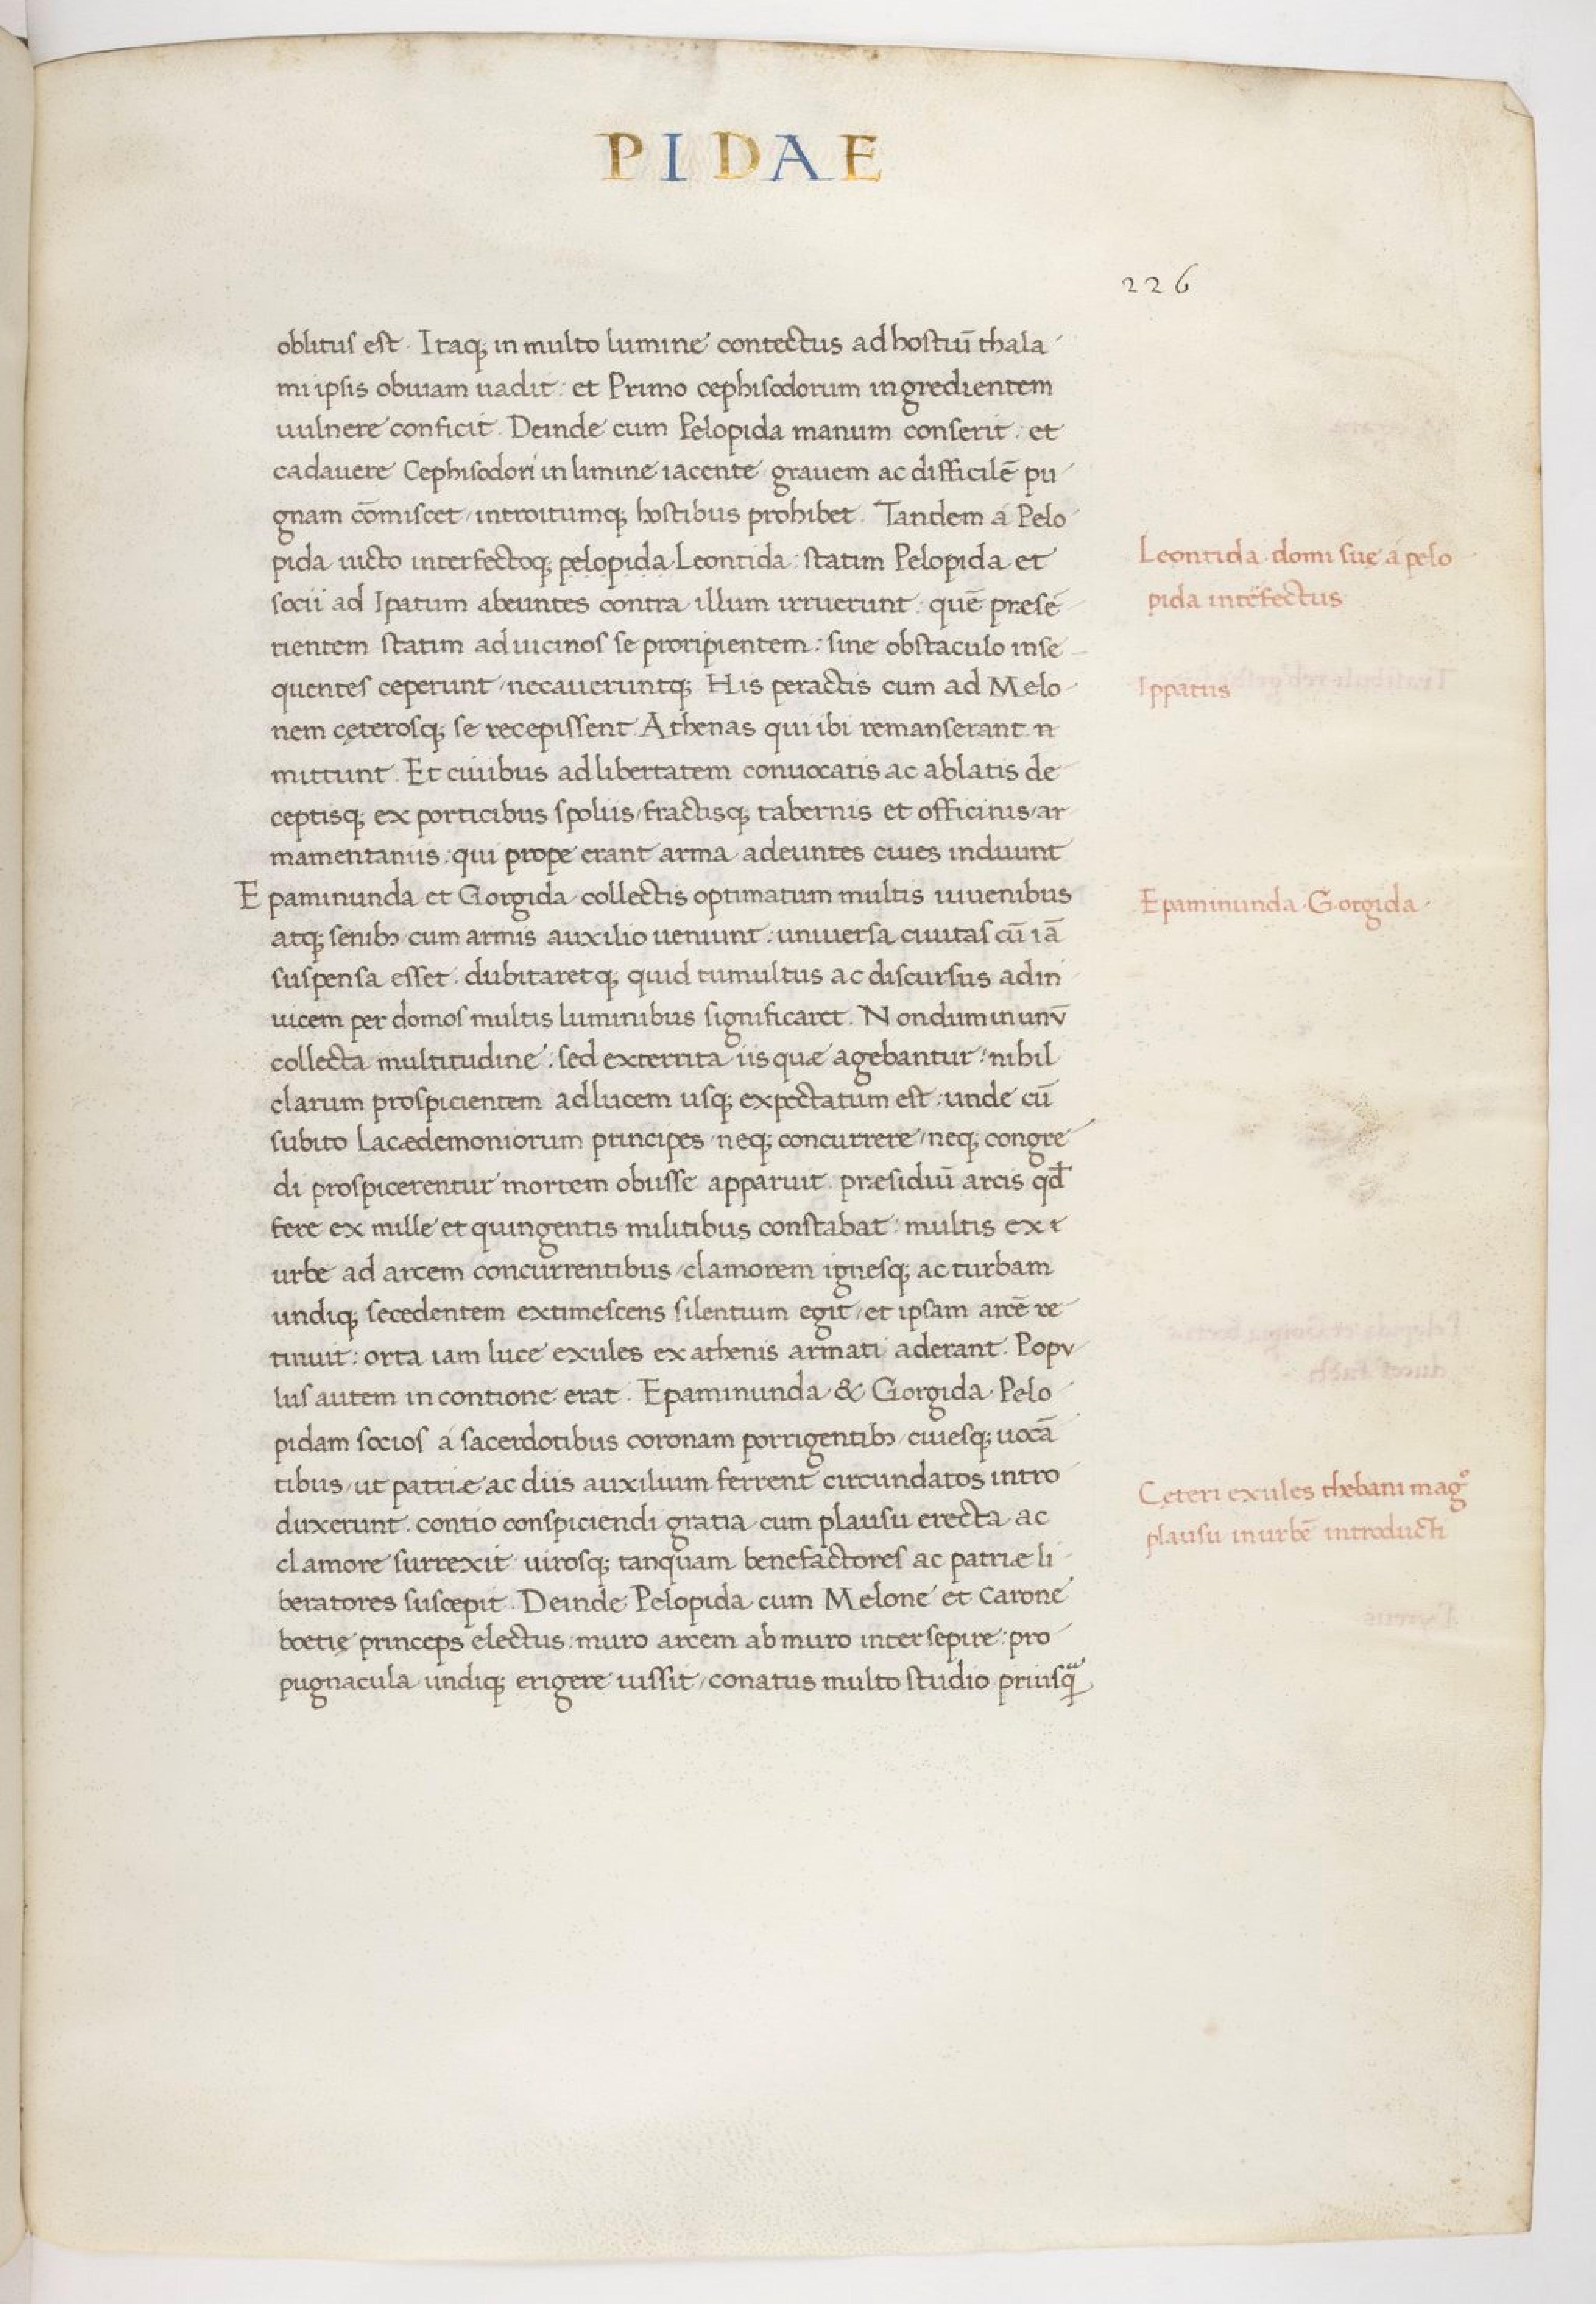 PIDAE
226
oblitus est. Itaq; in multo lumine contectus ad hostiū thala
mi ipsis obuiam uadit: et Primo cephisodorum ingredientem
uulnere conficit. Deinde cum Pelopida manum conserit: et
cadauere Cephisodori in limine iacente grauem ac difficilē pu
gnam cōmiscet, introitumq; hostibus prohibet. Tandem á Pelo
pida uicto interfectoq; pelopida Leontida: statim Pelopida et
socii ad Ipatum abeuntes contra illum irruerunt: quē præsē
tientem statim ad uicinos se proripientem: sine obstaculo inse
quentes ceperunt, necaueruntq; His peractis cum ad Melo
nem cęterosq; se recepissent Athenas qui ibi remanserant n
mittunt. Et ciuibus ad libertatem conuocatis ac ablatis de
ceptisq; ex porticibus spoliis, fractisq; tabernis et officinis, ar
mamentariis: qui prope erant arma adeuntes ciues induunt
Epaminunda et Gorgida collectis optimatum multis iuuenibus
atq; senibꝫ cum armis auxilio ueniunt: uniuersa ciuitas cū iā
suspensa esset. dubitaretq; quid tumultus ac discursus ad in
uicem per domos multis luminibus significaret. Nondum in unū
collecta multitudine: sed exterrita iis quæ agebantur: nihil
clarum prospicientem ad lucem usq; expectatum est: unde cū
subito Lacædemoniorum principes, neq; concurrere, neq; congre
di prospicerentur mortem obiisse apparuit. præsidiū arcis qđ
fere ex mille et quingentis militibus constabat: multis ex
urbe ad arcem concurrentibus, clamorem ignesq; ac turbam
undiq; secedentem extimescens silentium egit, et ipsam arcē re
tinuit: orta iam luce exules ex athenis armati aderant. Popu
lus autem in contione erat. Epaminunda & Gorgida Pelo
pidam socios á sacerdotibus coronam porrigentibꝫ, ciuesq; uocā
tibus, ut patriæ ac diis auxilium ferrent circundatos intro
duxerunt. contio conspiciendi gratia cum plausu erecta ac
clamore surrexit uirosq; tanquam benefactores ac patriæ li
beratores suscepit. Deinde Pelopida cum Melone et Carone
boetię princeps electus: muro arcem ab muro intersepire: pro
pugnacula undiq; erigere iussit, conatus multo studio priusq̃
Leontida domi suę á pelo
pida intēfectus
Ippatus
Epaminunda. Gorgida.
Cęteri exules thebani magº
plausu in urbē introducti